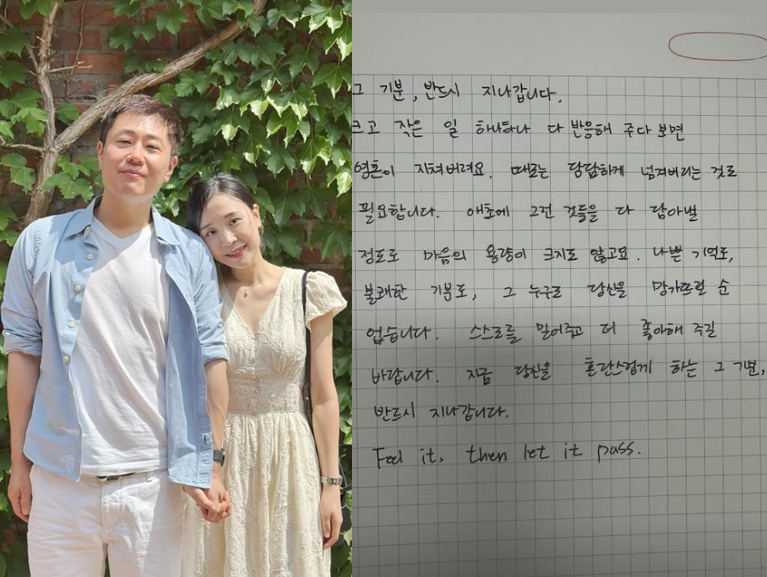 그 기분, 반드시 지나갑니다.
크고 작은 일 하나하나 다 반응해 주다 보면
영혼이 지쳐버려요. 때로는 담담하게 넘겨버리는 것도
필요합니다. 애초에 그런 것들을 다 담아낼
정도로 마음의 용량이 크지도 않고요. 나쁜 기억도,
불쾌한 기분도, 그 누구도 당신을 망가뜨릴 순
없습니다. 스스로를 믿어주고 더 좋아해 주길
바랍니다. 지금 당신을 혼란스럽게 하는 그 기분,
반드시 지나갑니다.
Feel it, then let it pass.